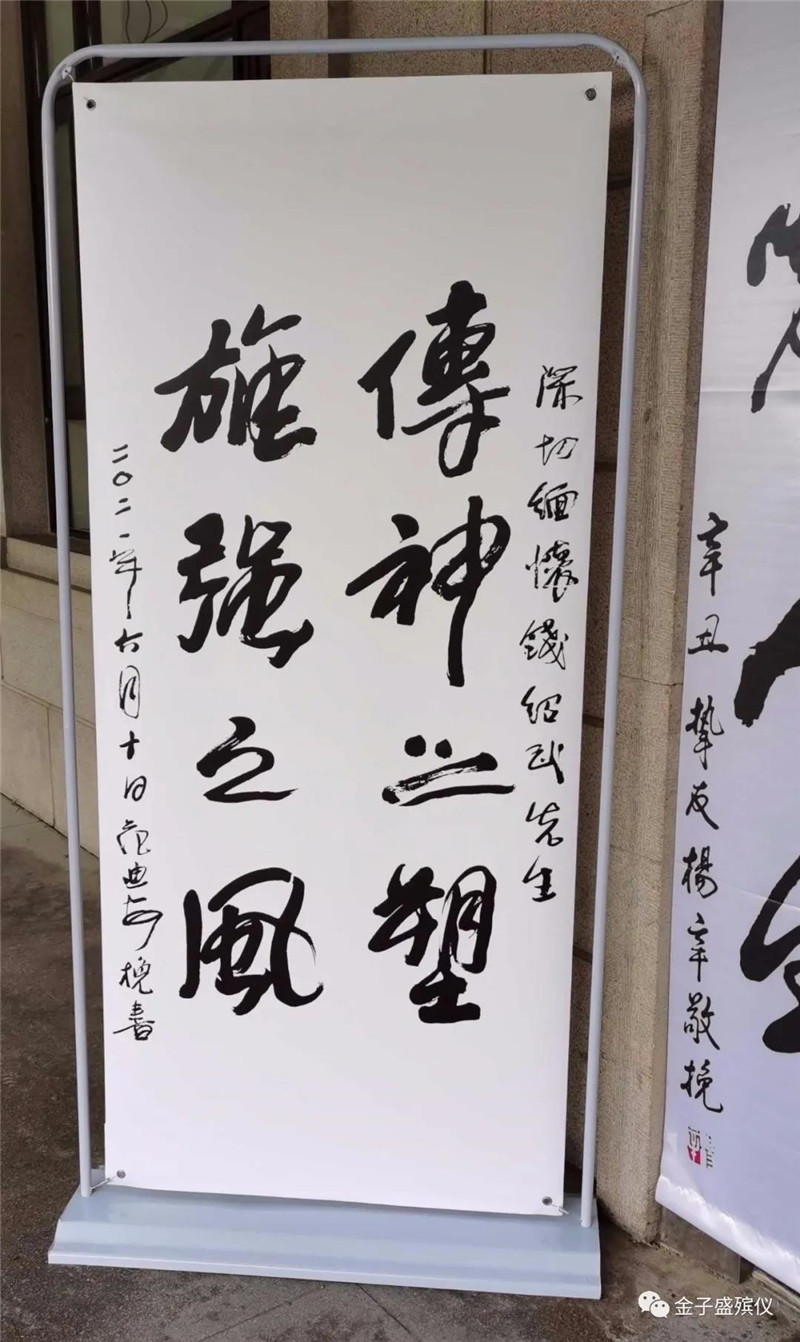 深切缅懷錢绍武先生
傳神之塑
雄强之风
二〇二一年六月十日范迪安挽書
辛丑 摯友楊辛敬挽
金子盛殡仪